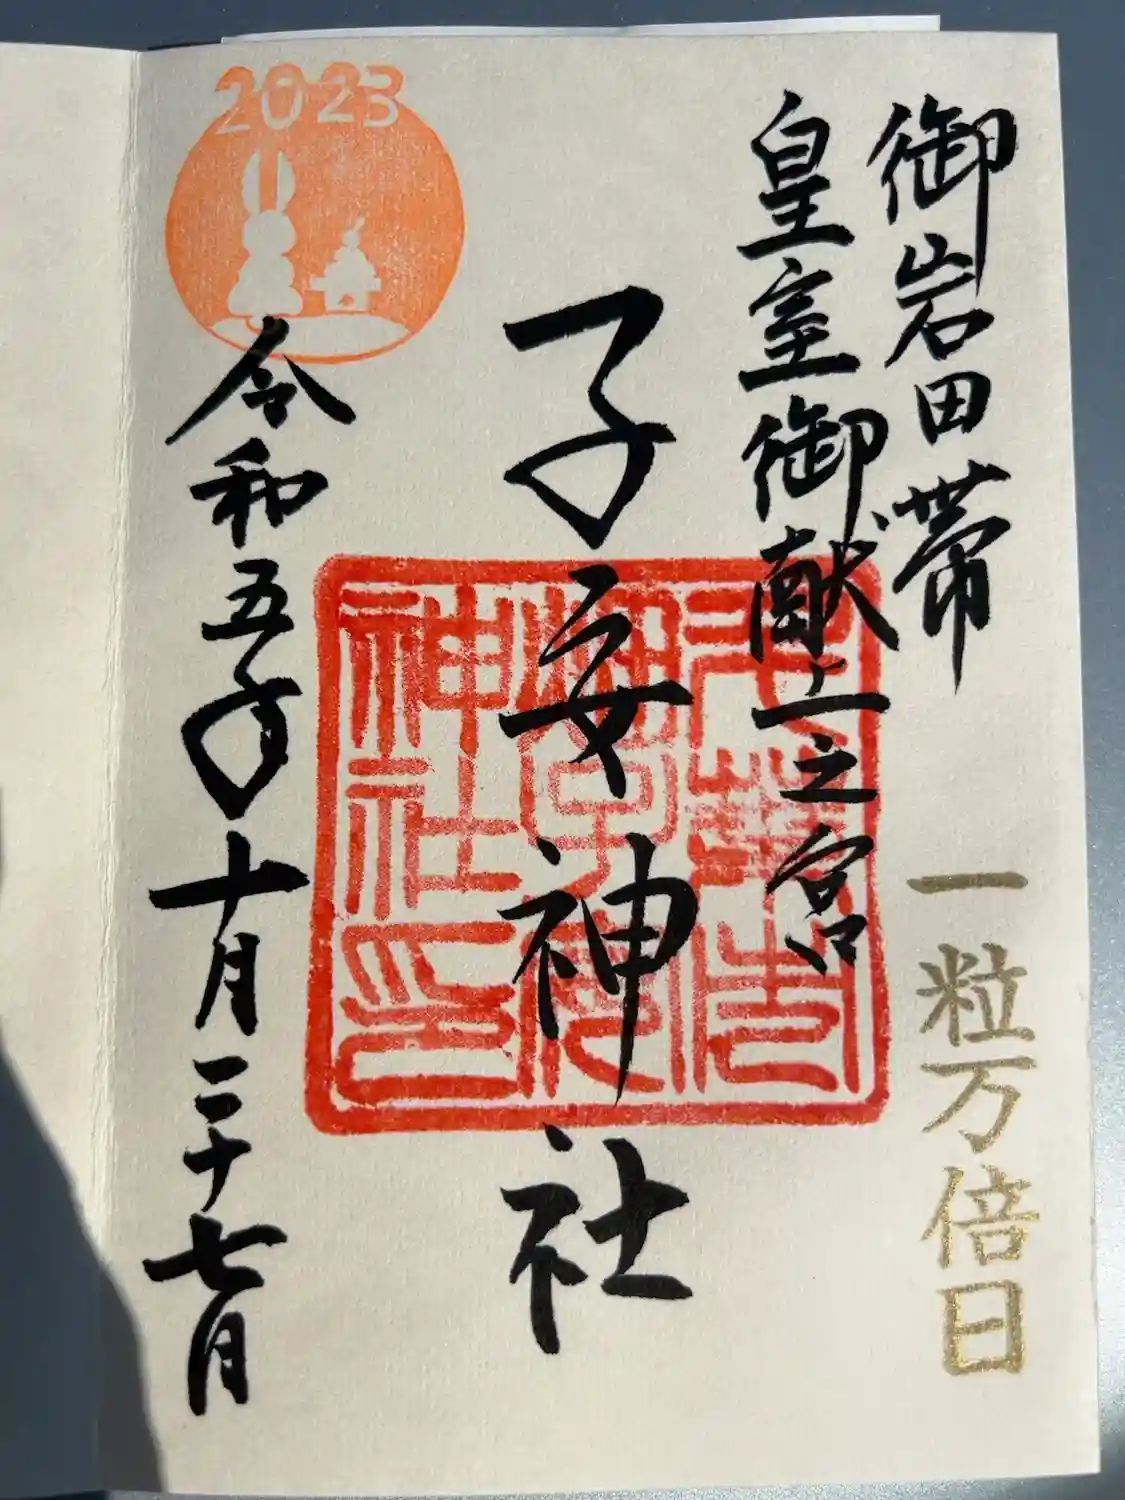 御岩田帯
皇室御献上之宮
一粒万倍日
子安神社
神社印
2023
令和五年十月二十七日